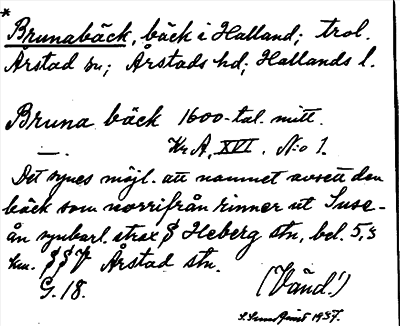 * Brunabäck, bäck i Halland; trol.
Årstad sn; Årstads hd; Hallands l.
Bruna bäck 1600-tal. mitt.
— . Kr A, XVI. No 1.
Det synes möjl. att namnet avsett den
bäck som norrifrån rinner ut Suse-
ån synbarl. strax S Heberg stn, bel. 5,3
km. SSV Årstad stn.
G. 18. (Vänd!)
1937.